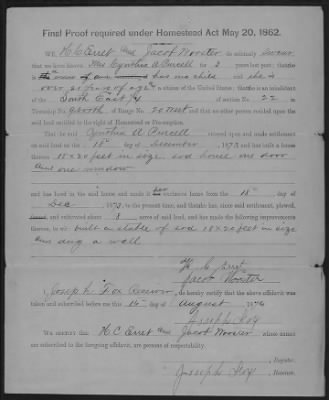 Final Proof required under Homestead Act May 20, 1862.
WE, H C Erret and Jacob Wooster do solemnly swear
that we have known Mrs Cynthia A Purcell for 2 years last past; that
she is has no child she is
over 21 years of age a citizen of the United States; that is an inhabitant
of the South East 1/4 of section No. 22 in
Township No. 9 North of Range No. 20 West and that no other person resided upon the
said land entitled to the right of Homestead or Pre-emption.
That the said Cynthia A Purcell entered upon and made settlement
on said land on the 18th day of December, 1873 and has built a house
thereon 15 x 20 feet in size sod house one door
and one window
and has lived in the said house and made it her exclusive home from the 18th day of
Dec 1873, to the present time, and that she has, since said settlement, plowed,
and cultivated about 8 acres of said land, and has made the following improvements
thereon, to wit: built a stable of sod 18 x 20 feet in size
and dug a well
H. C. Erret
Jacob Wooster
I, Joseph Fox Receiver, do hereby certify that the above affidavit
was taken and subscribed before me this 14th day of August 1876
Joseph Fox
WE CERTIFY that H C Erret and Jacob Wooster whose names
are subscribed to the foregoing affidavit, are persons of respectability.
Register.
Joseph Fox, Receiver.